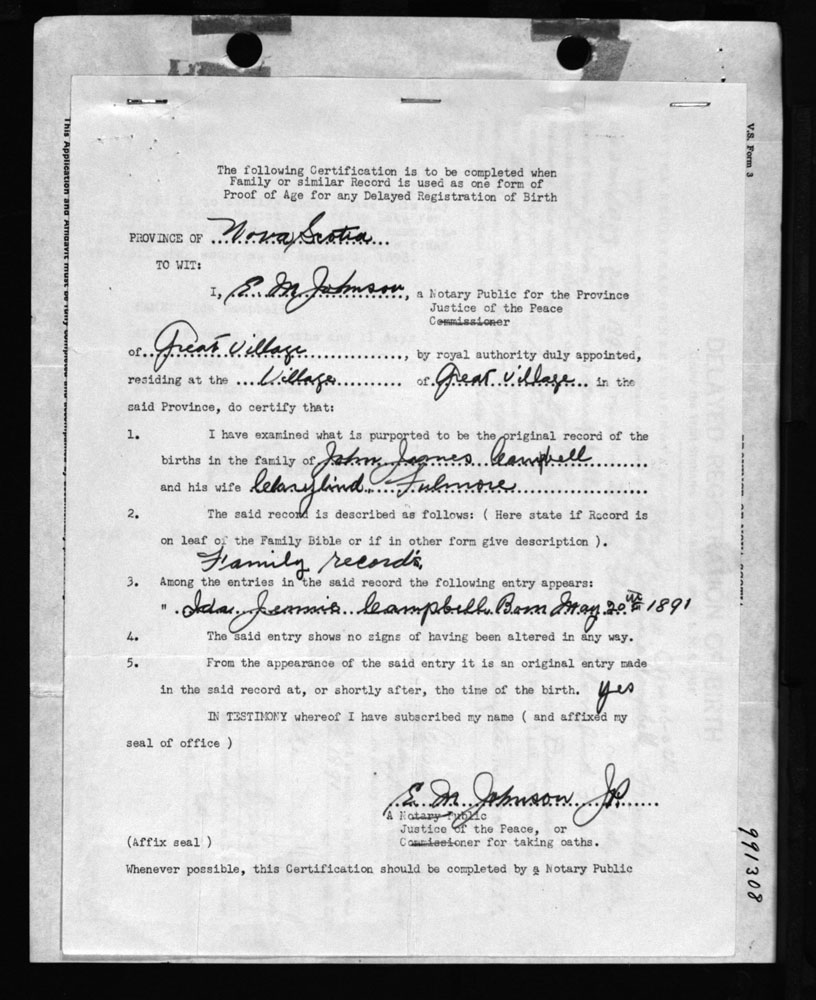 The following Certification is to be completed when
Family or similar Record is used as one form of
Proof of Age for any Delayed Registration of Birth
PROVINCE OF ...Nova Scotia...
TO WIT:
I, E. M. Johnson, a Notary Public for the Province
Justice of the Peace
Commissioner
of Great Village, by royal authority duly appointed,
residing at the ...Village... of Great Village... in the
said Province, do certify that:
1. I have examined what is purported to be the original record of the
births in the family of John James Campbell
and his wife Fulmore
2. The said record is described as follows: ( Here state if Record is
on leaf of the Family Bible or if in other form give description ).
Family records,
3. Among the entries in the said record the following entry appears:
" Ida Jennie Campbell Born May 20th 1891
4. The said entry shows no signs of having been altered in any way.
5. From the appearance of the said entry it is an original entry made
in the said record at, or shortly after, the time of the birth. Yes
IN TESTIMONY whereof I have subscribed my name ( and affixed my
seal of office )
E. M. Johnson JP
A Notary Public
Justice of the Peace, or
(Affix seal ) Commissioner for taking oaths.
Whenever possible, this Certification should be completed by a Notary Public
V.S. Form 3
991308